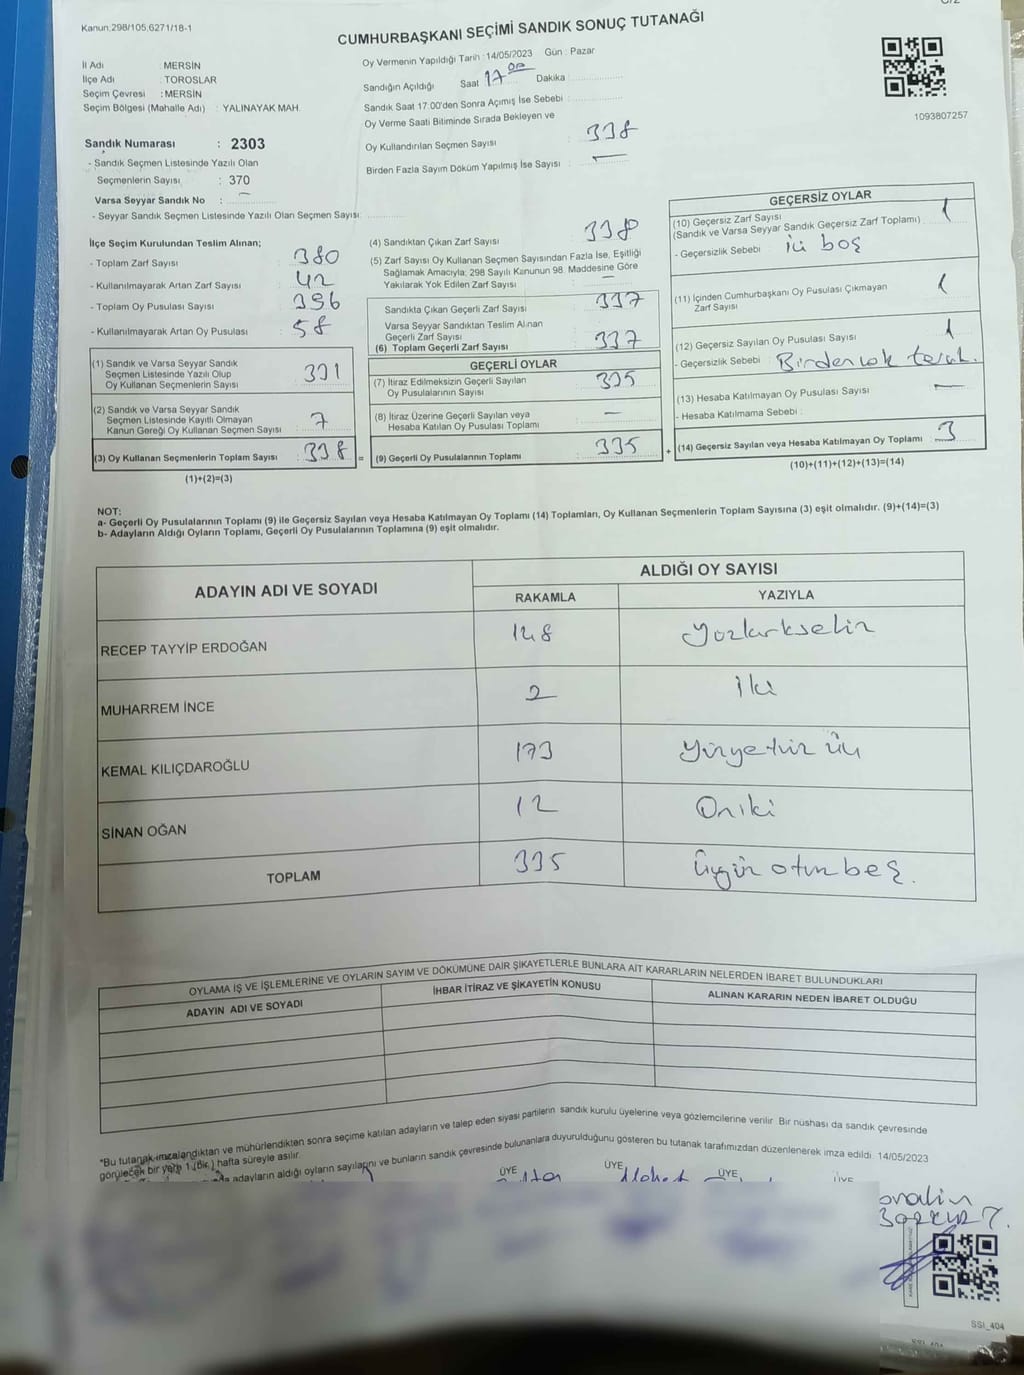 Kanun:298/105,6271/18-1
CUMHURBAŞKANI SEÇİMİ SANDIK SONUÇ TUTANAĞI
İl Adı : MERSİN
İlçe Adı : TOROSLAR
Seçim Çevresi : MERSİN
Seçim Bölgesi (Mahalle Adı) : YALINAYAK MAH.
Oy Vermenin Yapıldığı Tarih : 14/05/2023 Gün : Pazar
Sandığın Açıldığı Saat 17 00 Dakika
Sandık Saat 17:00'den Sonra Açımış İse Sebebi :
Oy Verme Saati Bitiminde Sırada Bekleyen ve
Oy Kullandırılan Seçmen Sayısı : 338
Birden Fazla Sayım Döküm Yapılmış İse Sayısı : —
1093807257
Sandık Numarası : 2303
- Sandık Seçmen Listesinde Yazılı Olan
Seçmenlerin Sayısı : 370
Varsa Seyyar Sandık No : —
- Seyyar Sandık Seçmen Listesinde Yazılı Olan Seçmen Sayısı:
İlçe Seçim Kurulundan Teslim Alınan;
- Toplam Zarf Sayısı : 380
- Kullanılmayarak Artan Zarf Sayısı : 42
- Toplam Oy Pusulası Sayısı : 396
- Kullanılmayarak Artan Oy Pusulası : 58
(1) Sandık ve Varsa Seyyar Sandık
Seçmen Listesinde Yazılı Olup
Oy Kullanan Seçmenlerin Sayısı : 331
(2) Sandık ve Varsa Seyyar Sandık
Seçmen Listesinde Kayıtlı Olmayan
Kanun Gereği Oy Kullanan Seçmen Sayısı : 7
(3) Oy Kullanan Seçmenlerin Toplam Sayısı : 338
(1)+(2)=(3)
(4) Sandıktan Çıkan Zarf Sayısı : 338
(5) Zarf Sayısı Oy Kullanan Seçmen Sayısından Fazla İse, Eşitliği
Sağlamak Amacıyla; 298 Sayılı Kanunun 98. Maddesine Göre
Yakılarak Yok Edilen Zarf Sayısı : —
Sandıkta Çıkan Geçerli Zarf Sayısı : 337
Varsa Seyyar Sandıktan Teslim Alınan
Geçerli Zarf Sayısı
(6) Toplam Geçerli Zarf Sayısı : 337
GEÇERLİ OYLAR
(7) İtiraz Edilmeksizin Geçerli Sayılan
Oy Pusulalarının Sayısı : 335
(8) İtiraz Üzerine Geçerli Sayılan veya
Hesaba Katılan Oy Pusulası Toplamı : —
(9) Geçerli Oy Pusulalarının Toplamı : 335
GEÇERSİZ OYLAR
(10) Geçersiz Zarf Sayısı : 1
(Sandık ve Varsa Seyyar Sandık Geçersiz Zarf Toplamı)
- Geçersizlik Sebebi : içi boş
(11) İçinden Cumhurbaşkanı Oy Pusulası Çıkmayan
Zarf Sayısı : 1
(12) Geçersiz Sayılan Oy Pusulası Sayısı : 1
- Geçersizlik Sebebi : Birden cok terch.
(13) Hesaba Katılmayan Oy Pusulası Sayısı : —
- Hesaba Katılmama Sebebi :
(14) Geçersiz Sayılan veya Hesaba Katılmayan Oy Toplamı : 3
(10)+(11)+(12)+(13)=(14)
NOT:
a- Geçerli Oy Pusulalarının Toplamı (9) ile Geçersiz Sayılan veya Hesaba Katılmayan Oy Toplamı (14) Toplamları, Oy Kullanan Seçmenlerin Toplam Sayısına (3) eşit olmalıdır. (9)+(14)=(3)
b- Adayların Aldığı Oyların Toplamı, Geçerli Oy Pusulalarının Toplamına (9) eşit olmalıdır.
ADAYIN ADI VE SOYADI
ALDIĞI OY SAYISI
RAKAMLA YAZIYLA
RECEP TAYYİP ERDOĞAN 148 yüzkırksekiz
MUHARREM İNCE 2 iki
KEMAL KILIÇDAROĞLU 173 yüzyetmiş üç
SİNAN OĞAN 12 Oniki
TOPLAM 335 üçyüz otuz beş.
OYLAMA İŞ VE İŞLEMLERİNE VE OYLARIN SAYIM VE DÖKÜMÜNE DAİR ŞİKAYETLERLE BUNLARA AİT KARARLARIN NELERDEN İBARET BULUNDUKLARI
ADAYIN ADI VE SOYADI İHBAR İTİRAZ VE ŞİKAYETİN KONUSU ALINAN KARARIN NEDEN İBARET OLDUĞU
*Bu tutanak imzalandıktan ve mühürlendikten sonra seçime katılan adayların ve talep eden siyasi partilerin sandık kurulu üyelerine veya gözlemcilerine verilir. Bir nüshası da sandık çevresinde
görülecek bir yere 1 (Bir ) hafta süreyle asılır.
adayların aldığı oyların sayılarını ve bunların sandık çevresinde bulunanlara duyurulduğunu gösteren bu tutanak tarafımızdan düzenlenerek imza edildi. 14/05/2023
ÜYE ÜYE ÜYE ÜYE
SSI_404